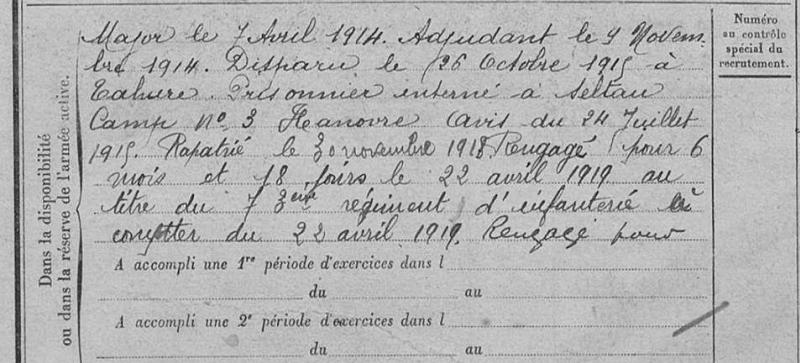 Major le 7 Avril 1914. Adjudant le 9 Novem-
bre 1914. Disparu le 26 Octobre 1915 à
Tahure. Prisonnier interné à Seltau
Camp N° 3 Hanovre Avis du 24 Juillet
1915. Rapatrié le 30 novembre 1918 Rengagé pour 6
mois et 18 jours le 22 avril 1919 au
titre du 73ème régiment d'infanterie à
compter du 22 avril 1919. Rengagé pour
A accompli une 1re période d'exercices dans l
du au
A accompli une 2e période d'exercices dans l
du au
Dans la disponibilité
ou dans la réserve de l'armée active.
Numéro
au contrôle
spécial du
recrutement.